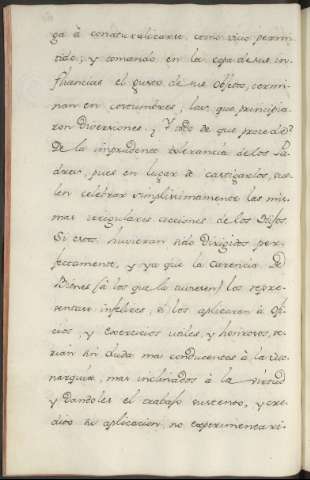 ga à connaturalizarse, como vicio permi-
tido; y tomando en la copa de sus in-
fluencias el gusto de sus objetos, termi-
nan en costumbres, las que principia-
ron diversiones; ¿Y esto de que procede?
De la imprudente tolerancia de los Pa-
dres, pues en lugar de castigarlos, sue-
len celebrar simplisimamente las mis-
mas irregulares acciones de los Hijos.
Si estos, huvieran sido Dirigidos per-
fectamente, y ya que la carencia De
Bienes (à los que la tuviesen) los repre-
sentase infelices, si los aplicaran à Ofi-
cios, y exercicios utiles, y honrosos, se-
rian sin duda mas conducentes à la Mo-
narquia, mas inclinados à la virtud
y dandoles el trabajo sustento, y cre-
dito su aplicacion, no experimentari-